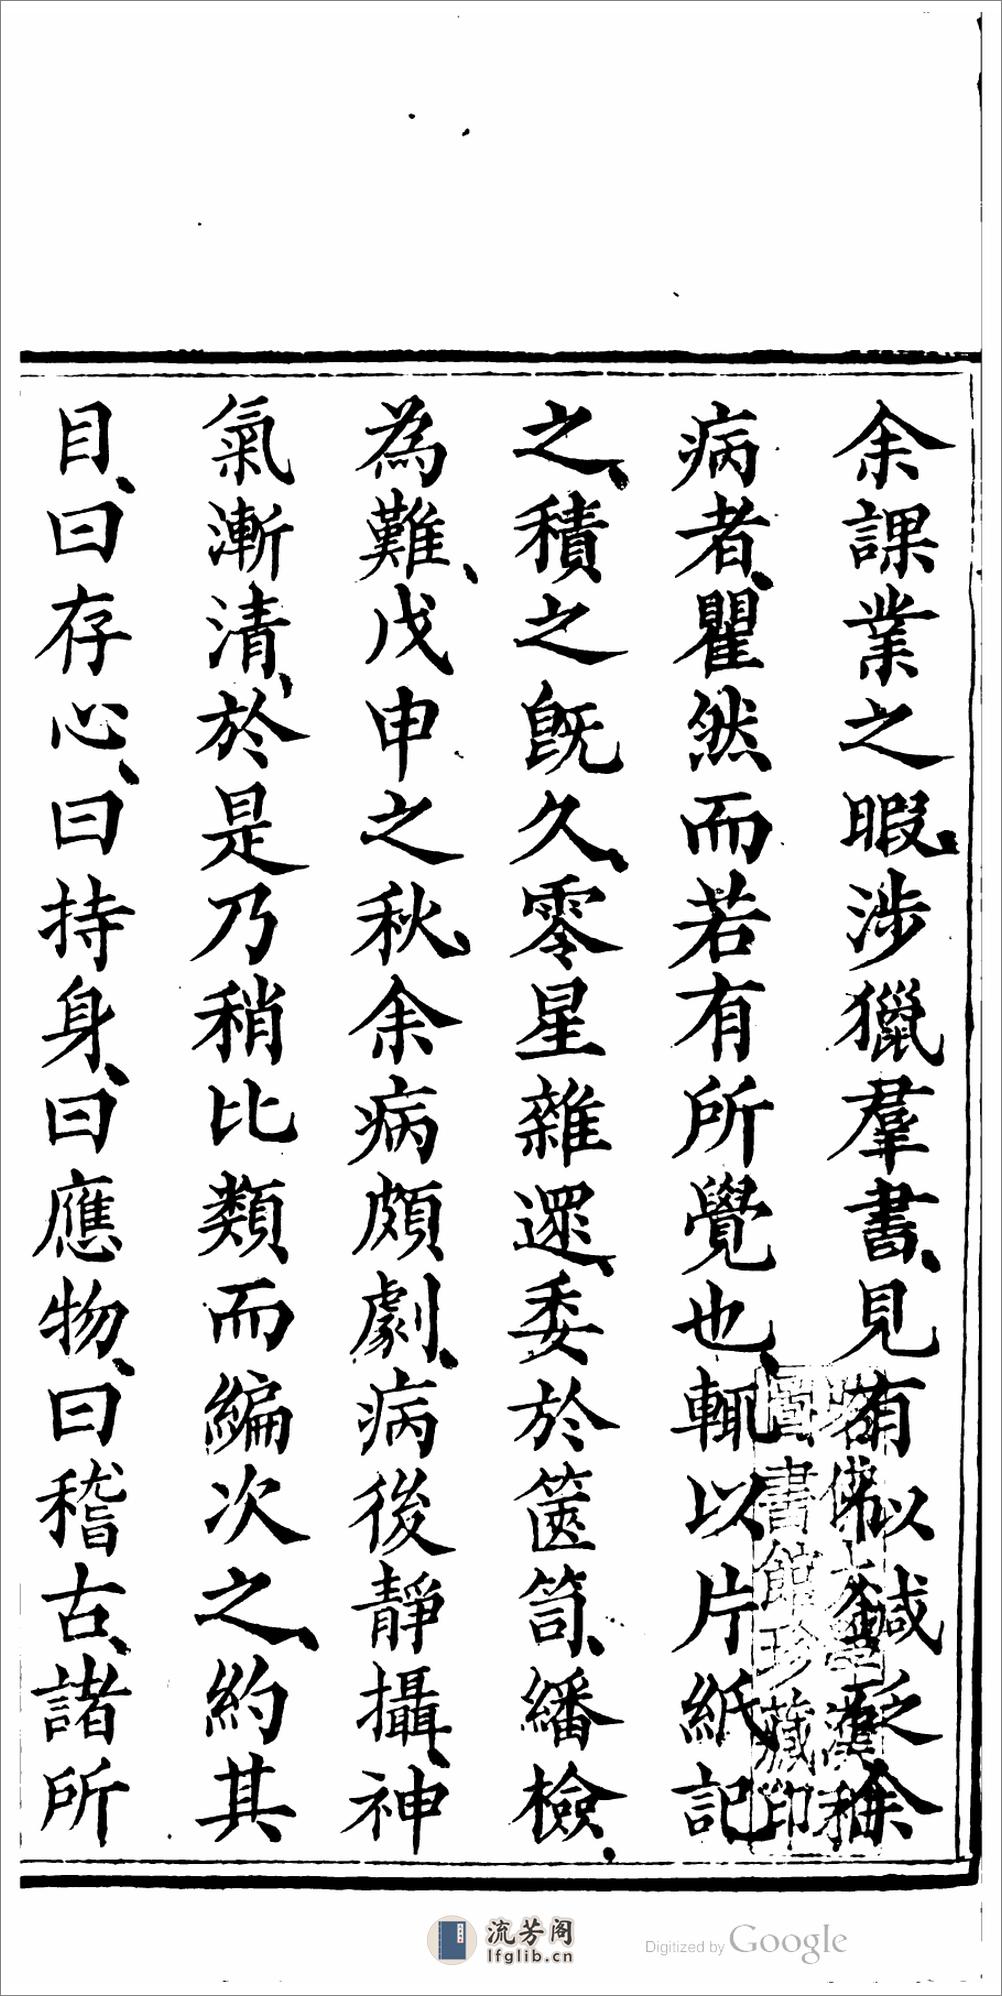 余課業之暇、涉獵羣書、見有以鍼砭余
病者、瞿然而若有所覺也、輒以片紙記
之、積之既久、零星雜遝、委於篋笥、繙檢、
為難、戊申之秋余病頗劇、病後靜攝、神
氣漸清、於是乃稍比類而編次之、約其
目、曰存心、曰持身、曰應物、曰稽古、諸所
哈佛大學漢和
圖書館珍藏印
流芳阁
lfglib.cn
Digitized by Google